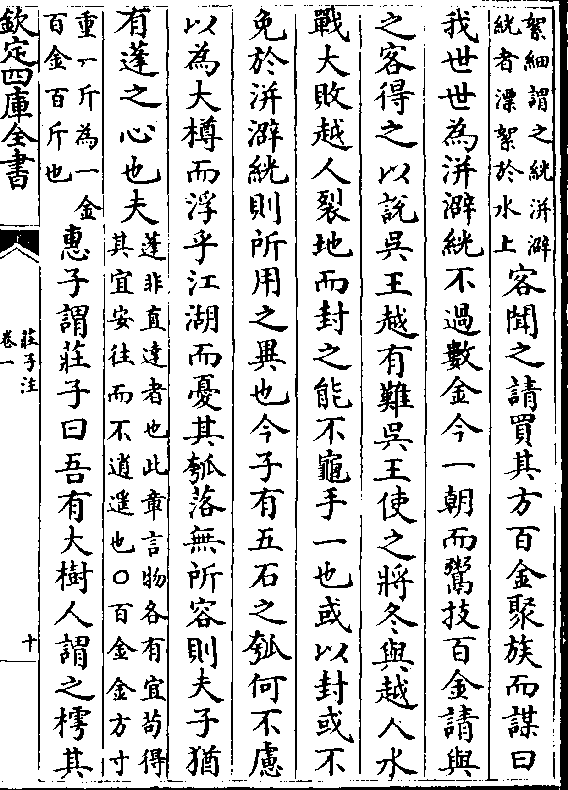 絮細謂之絖洴澼
絖者漂絮於水上
客聞之請買其方百金聚族而謀曰
我世世為洴澼絖不過數金今一朝而鬻技百金請與
之客得之以說吳王越有難吳王使之將冬與越人水
戰大敗越人裂地而封之能不龜手一也或以封或不
免於洴澼絖則所用之異也今子有五石之瓠何不慮
以為大樽而浮乎江湖而憂其瓠落無所容則夫子猶
有蓬之心也夫
蓬非直達者也此章言物各有宜茍得
其宜安往而不逍遙也〇百金金方寸
重一斤為一金
百金百斤也
惠子謂莊子曰吾有大樹人謂之樗其
欽定四庫全書
莊子注
卷一
十